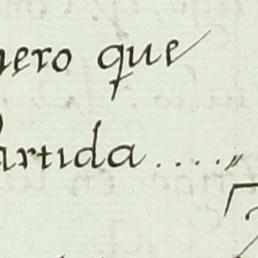 nero que
artida....„